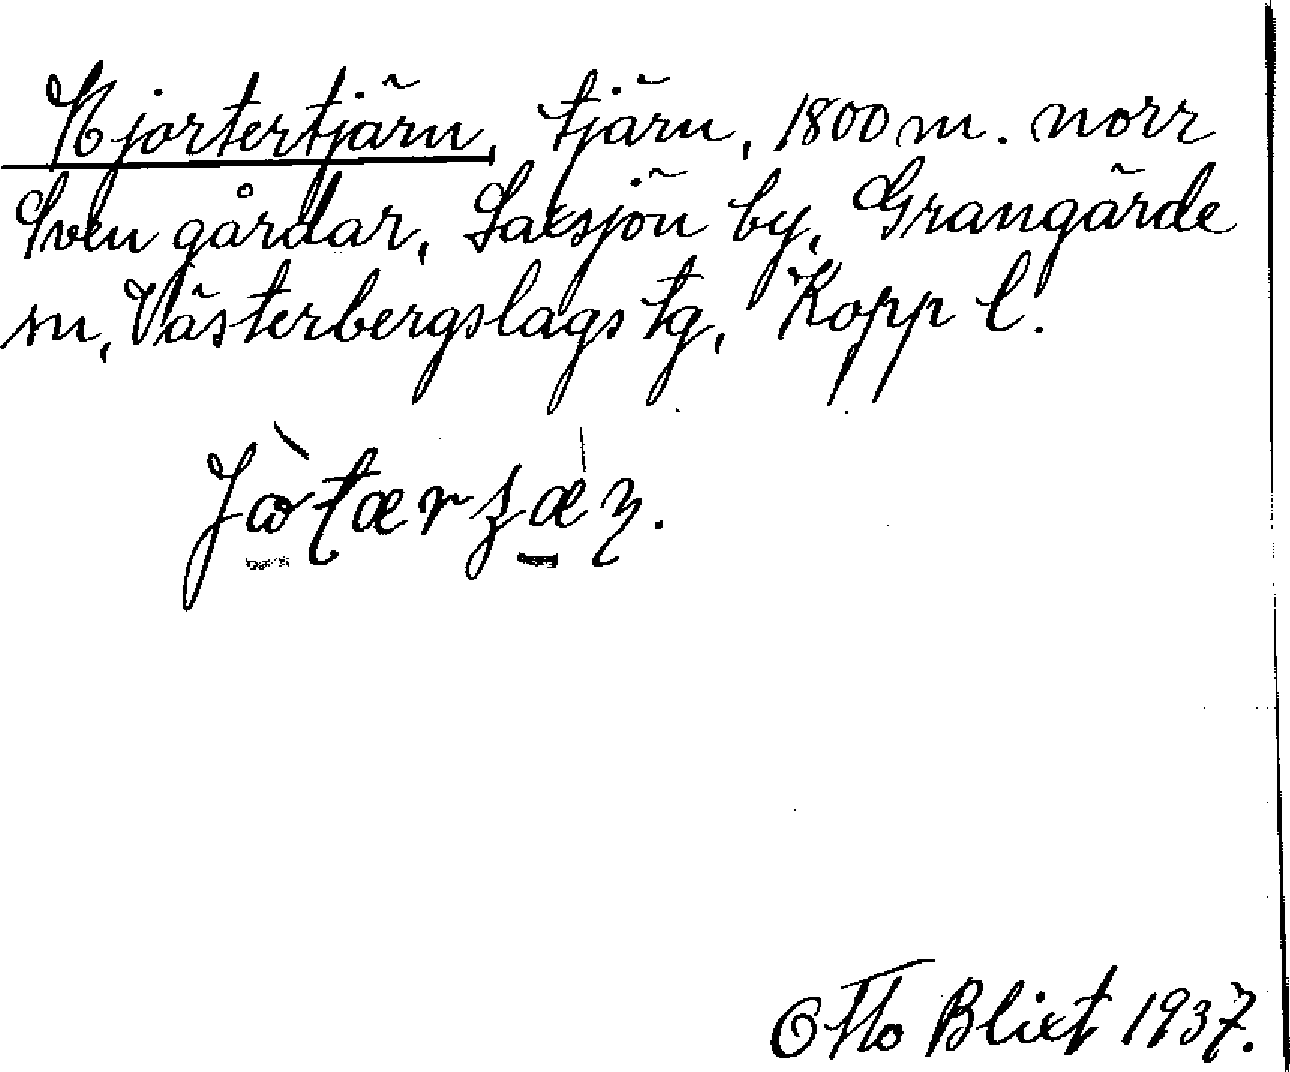 Hjortertjärn, tjärn, 1800 m. norr
Svengårdar, Saxsjön by, Grangärde
sn, Västerbergslags tg, Kopp l.
Otto Blixt 1937.